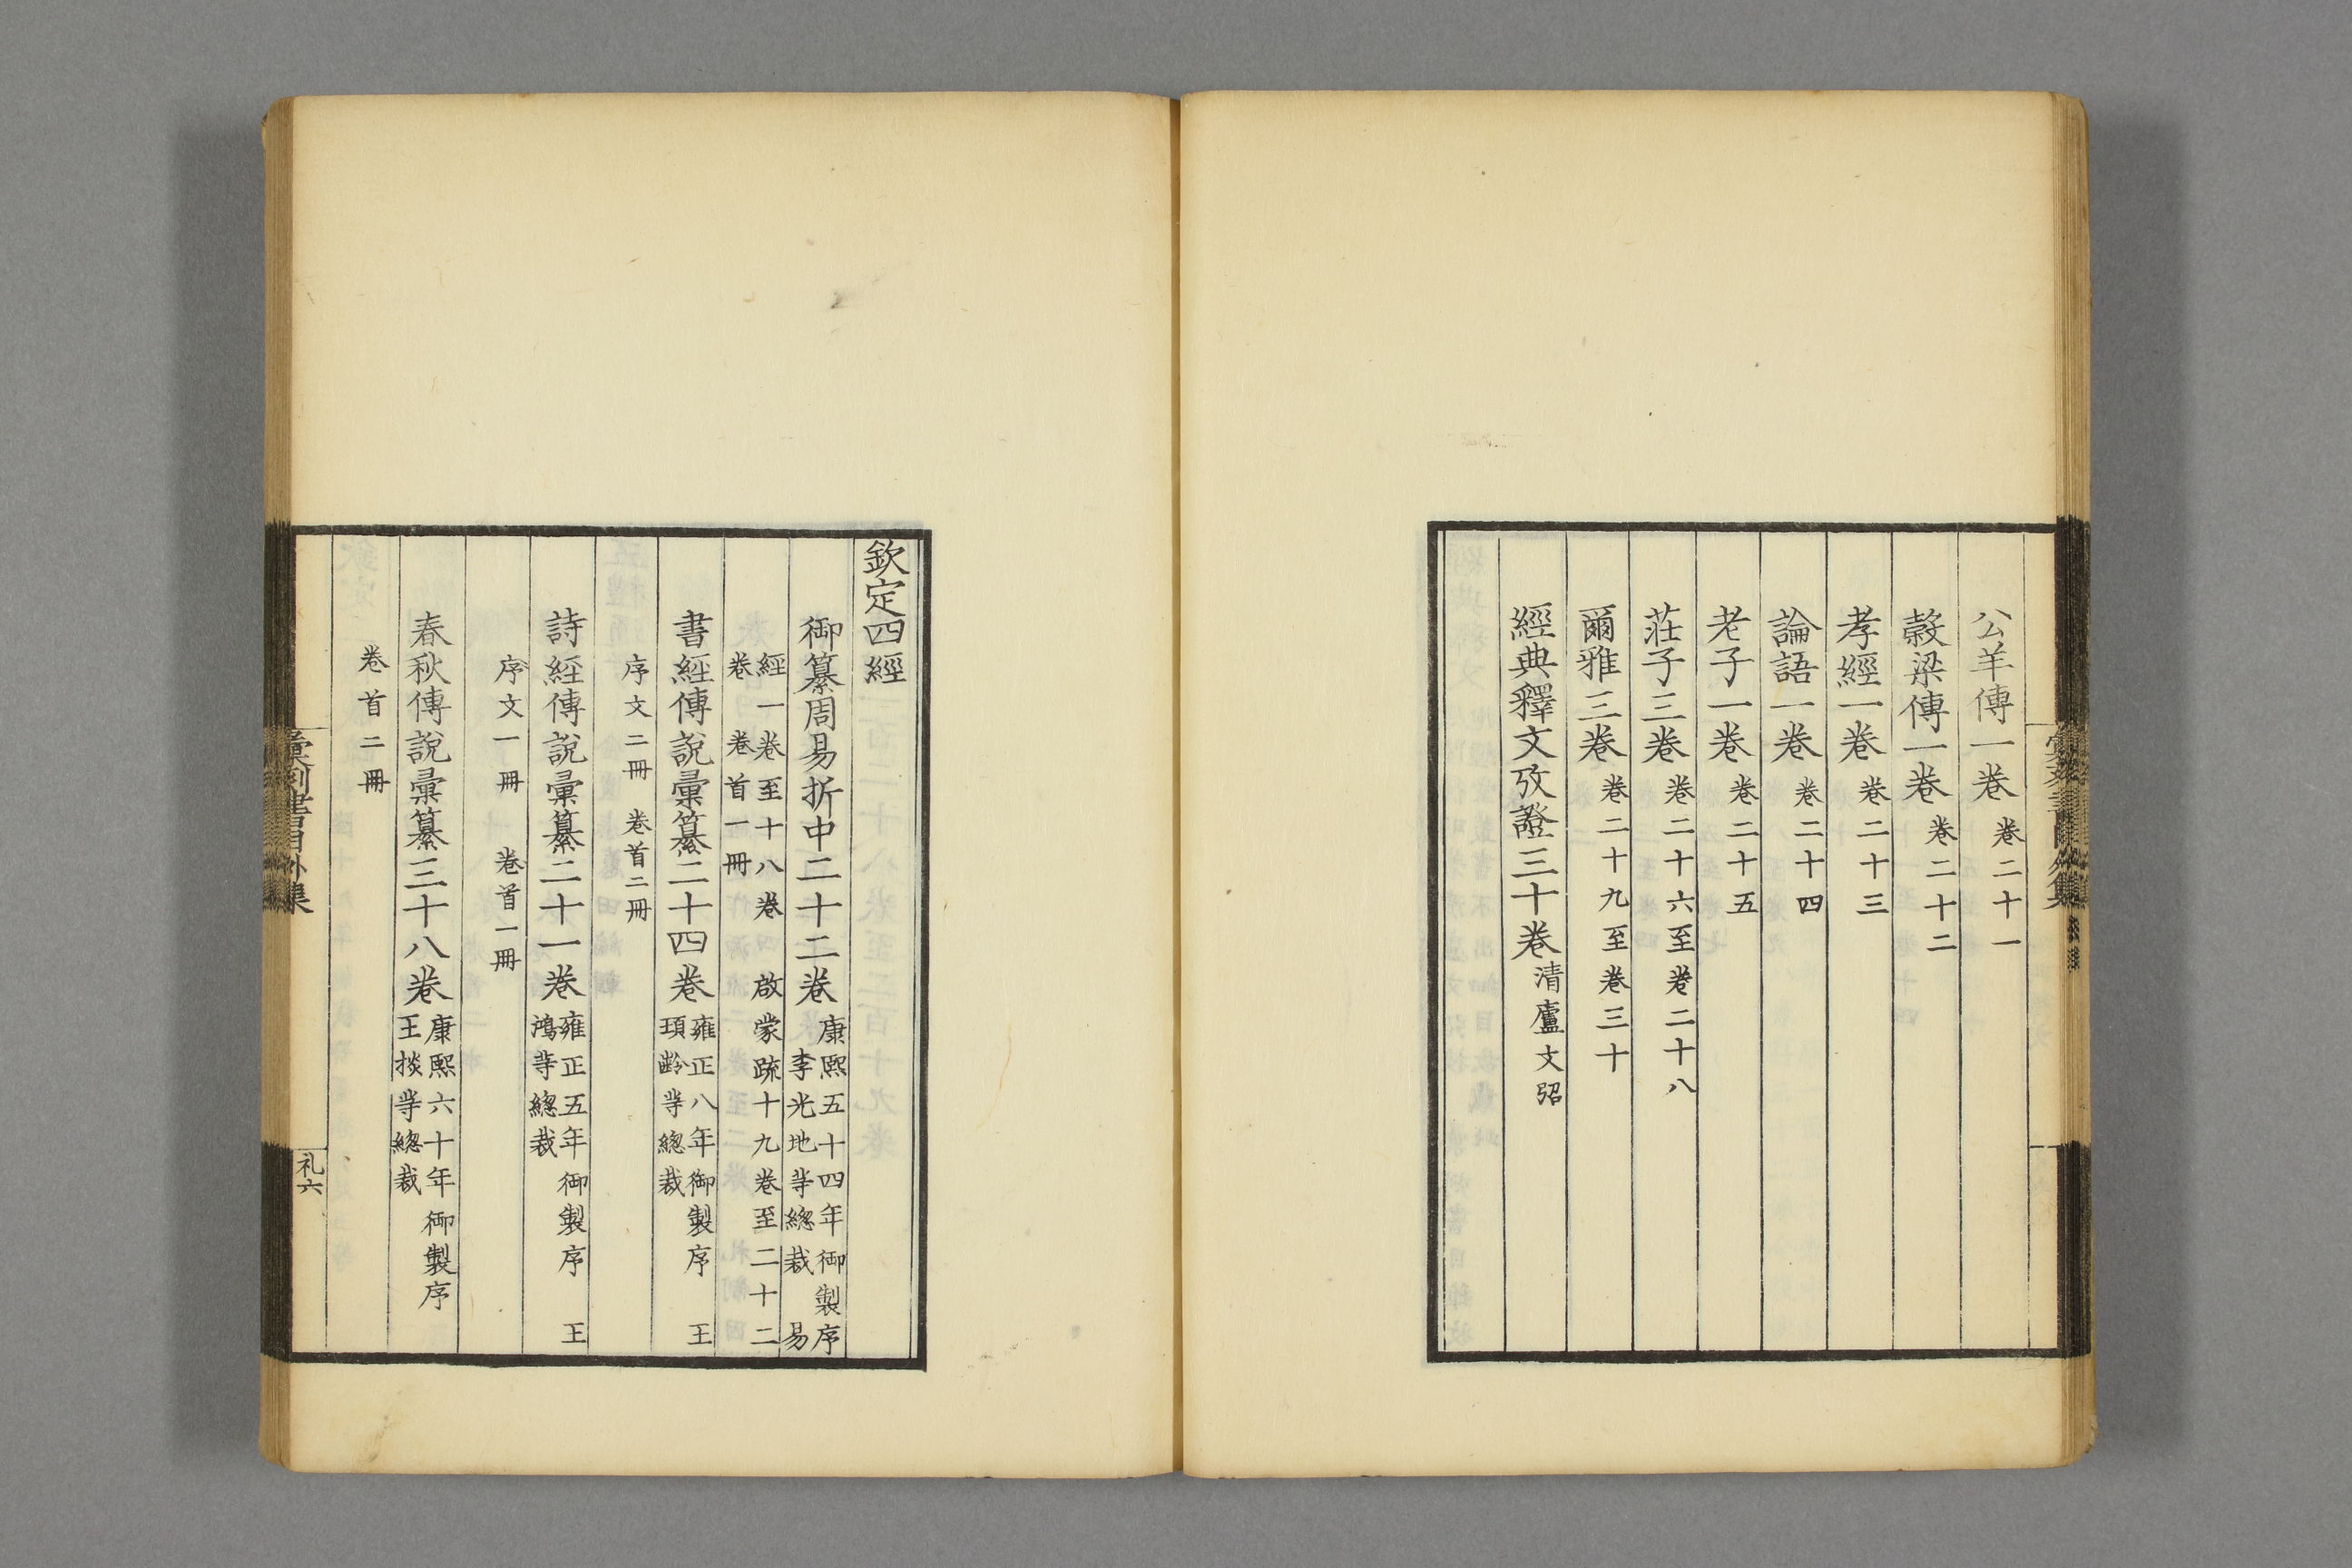 公羊傳一卷 卷二十一
穀梁傳一卷 卷二十二
孝經一卷 卷二十三
論語一卷 卷二十四
老子一卷 卷二十五
莊子三卷 卷二十六至卷二十八
爾雅三卷 卷二十九至卷三十
經典釋文攷證三十卷 清盧文弨
欽定四經
御纂周易折中二十二卷 康熙五十四年御製序
李光地等總裁 易
經一卷至十八卷 啟蒙疏十九卷至二十二
卷 卷首一冊
書經傳說彙纂二十四卷 雍正八年御製序 王
頊齡等總裁
序文二冊 卷首二冊
詩經傳說彙纂二十一卷 雍正五年御製序 王
鴻等總裁
序文一冊 卷首一冊
春秋傳說彙纂三十八卷 康熙六十年御製序
王掞等總裁
卷首二冊
彙刻書目外集
礼六